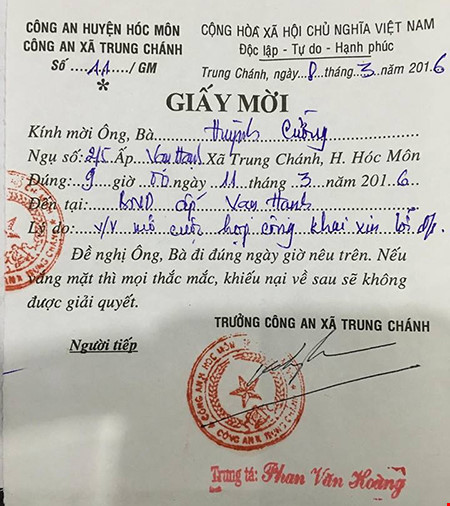 CÔNG AN HUYỆN HÓC MÔN
CÔNG AN XÃ TRUNG CHÁNH
Số ....11..../GM
*
CỘNG HÒA XÃ HỘI CHỦ NGHĨA VIỆT NAM
Độc lập - Tự do - Hạnh phúc
Trung Chánh, ngày..8..tháng..3..năm 2016
GIẤY MỜI
Kính mời Ông, Bà......Huỳnh Cường
Ngụ số: 2/5 Ấp Vạn Hạnh Xã Trung Chánh, H. Hóc Môn
Đúng:..9...giờ 00 ngày..11...tháng..3...năm 2016
Đến tại: BND ấp Vạn Hạnh
Lý do: v/v mở cuộc họp công khai xin lỗi
Đề nghị Ông, Bà đi đúng ngày giờ nêu trên. Nếu
vắng mặt thì mọi thắc mắc, khiếu nại về sau sẽ không
được giải quyết.
TRƯỞNG CÔNG AN XÃ TRUNG CHÁNH
Người tiếp
CÔNG AN H HÓC MÔN
CÔNG AN XÃ TRUNG CHÁNH
Trung tá: Phan Văn Hoàng